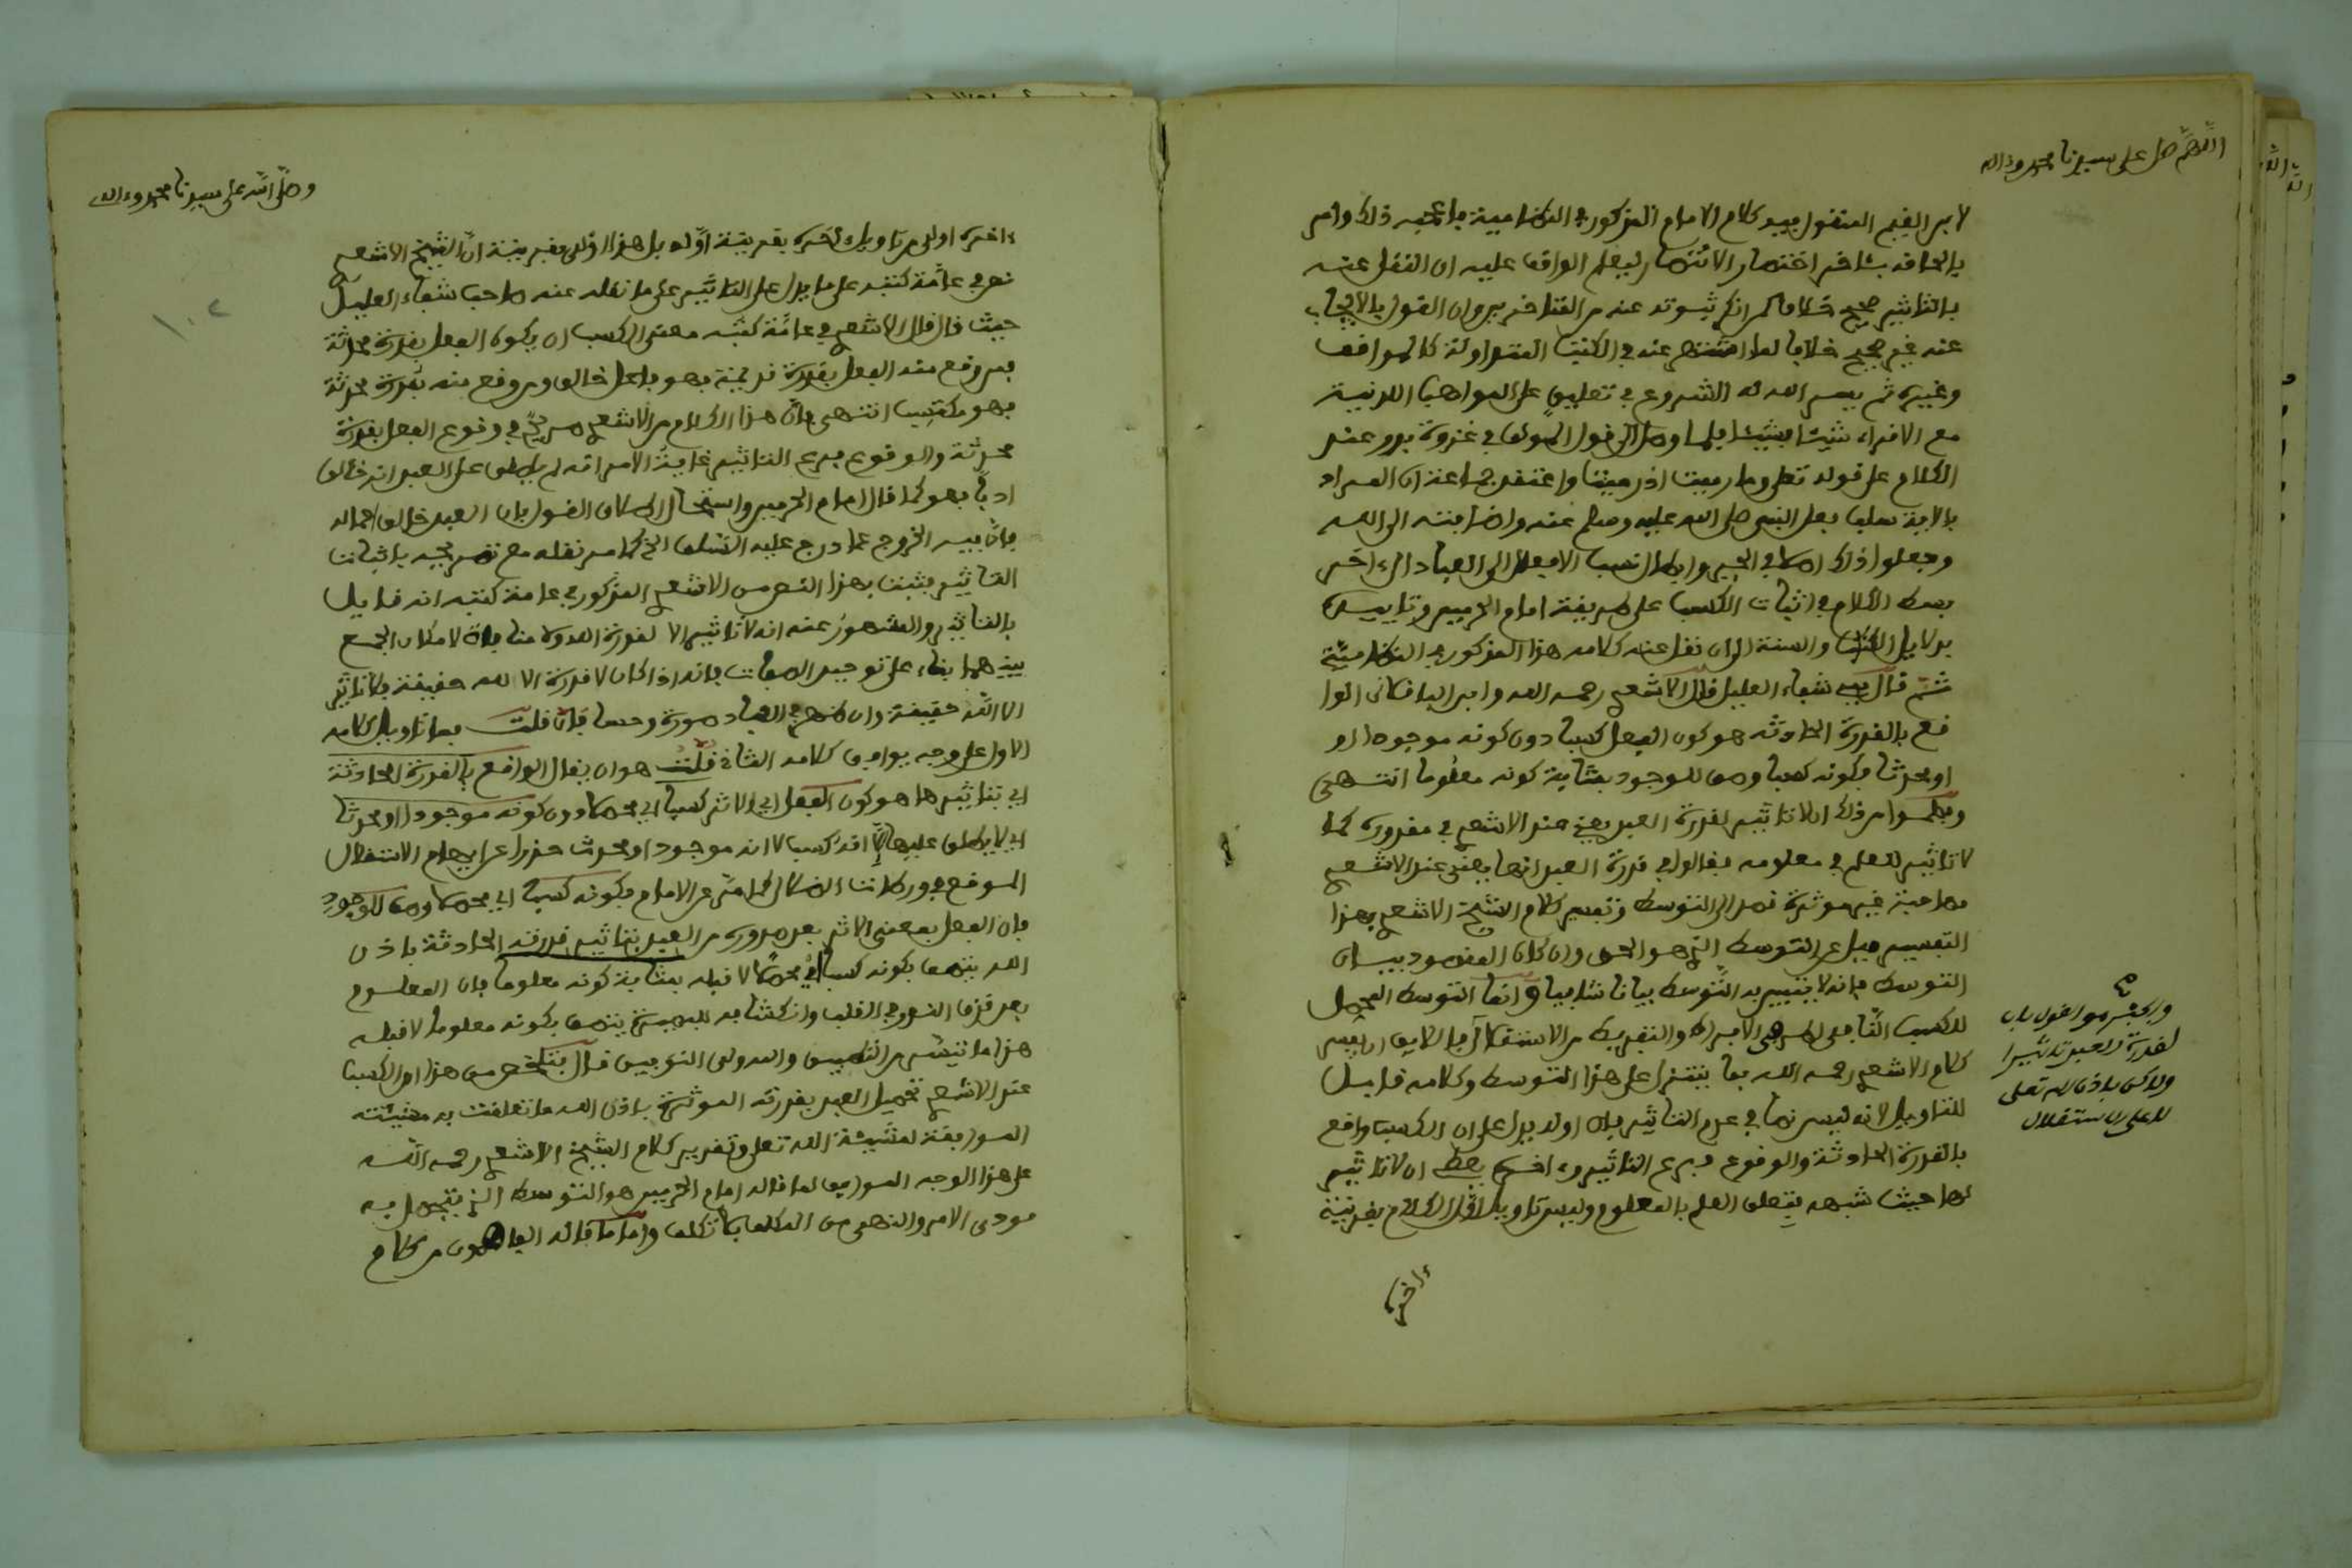 اللهم صل على سيدنا محمد وءاله
لابن القيم المنقول فيه كلام الامام المذكور في النظامية فاعجبه ذلك وامر
بالحاقه بـاخر اختصار الانتصار ليعلم الواقف عليه ان النقل عنه
بالتاثير صحيح خلافا لمن انكر ثبوته عنه من المتاخرين وان القول بالايجاب
عنه غير صحيح خلافا لما اشتهر عنه في الكتب المتداولة كالمواقف
وغيره ثم يسر الله له الشروع في تعليق على المواهب اللدنية
مع الاقراء شيئا فشيئا فلما وصل الى قول المولف في غزوة بدر عند
الكلام على قوله تعلى وما رميت اذ رميت واعتقد جماعة ان المراد
بالاية سلب فعل النبي صلى الله عليه وسلم عنه واضافته الى الله
وجعلوا ذلك اصلا في الجبر وابطال نسب الافعال الى العباد الى ءاخره
بسط الكلام في اثبات الكسب على طريقة امام الحرمين وتاييده
بدلايل الكتاب والسنة الى ان نقل عنه كلامه هذا المذكور في النظامية
ثم قال في شفاء العليل قال الاشعري رحمه الله وابن الباقلاني الوا
قع بالقدرة الحادثة هو كون الفعل كسبا دون كونه موجودا او
او محدثا فكونه كسبا وصف للوجود بمثابة كونه معلوما انتهى
وفهموا من ذلك ان لا تاثير لقدرة العبد يعني عند الاشعري في مقدوره كما
لا تاثير للعلم في معلومه فقالوا في قدرة العبد انها يعني عند الاشعري
مصاحبة غير موثرة قصدا الى التوسط وتفسير كلام الشيخ الاشعري بهذا
التفسير ميل عن التوسط الذي هو الحق وان كان المقصود بيان
التوسط فانه لا يتبين به التوسط بيانا شافيا وانما التوسط المحصل
للكسب النافي لطرفي الافراط والتفريط من الاستقلال فاللايق ان يفسر
كلام الاشعري رحمه الله بما يتنزل على هذا التوسط وكلامه قابل
للتاويل لانه ليس نصا في عدم التاثير فان اوله يدل على ان الكسب واقع
بالقدرة الحادثة والوقوع فرع التاثير وءاخره يعطي ان لا تاثير
لها حيث شبهه بتعلق العلم بالمعلوم وليس تاويل اول الكلام بقرينة
ءاخره
والجبر هو القول بان
لقدرة العبد تاثيرا
ولاكن باذن الله تعلى
لا على الاستقلال
وصلى الله على سيدنا محمد وءاله
١٠٢
ءاخره اولى من تاويل ءاخره بقرينة اوله بل هذا اولى بقرينة ان الشيخ الاشعري
نص في عامة كتبه على ما يدل على التاثير على ما نقله عنه صاحب شفاء العليل
حيث قال قال الاشعري في عامة كتبه معنى الكسب ان يكون الفعل بقدرة محدثة
فمن وقع منه الفعل بقدرة قديمة فهو فاعل خالق ومن وقع منه بقدرة محدثة
فهو مكتسب انتهى فان هذا الكلام من الاشعري صريح في وقوع الفعل بقدرة
محدثة والوقوع فرع التاثير غاية الامر انه لم يطلق على العبد انه خالق
ادبا فهو كما قال امام الحرمين واستحال اطلاق القول بان العبد خالق اعماله
فان فيه الخروج عما درج عليه السلف الخ كما مر نقله مع تصريحه باثبات
التاثير فثبت بهذا النص من الاشعري المذكور في عامة كتبه انه قايل
بالتاثير والمشهور عنه انه لا تاثير الا لقدرة الله ولا منافاة لامكان الجمع
بينهما بناء على توحيد الصفات فانه اذا كان لا قدرة الا لله حقيقة فلا تاثير
الا لله حقيقة وان ظهر في العباد صورة وحسا فان قلت فما تاويل كلامه
الاول على وجه يوافق كلامه الثاني قلت هو ان يقال الواقع بالقدرة الحادثة
اي بتاثيرها هو كون الفعل اي الاثر كسبا اي محصلا دون كونه موجودا او محدثا
اي لا يطلق عليها الا انه كسب لا انه موجود او محدث حذرا من ايهام الاستقلال
الموقع في ورطات الضلال كما مر عن الامام فكونه كسبا اي محصلا وصف للوجود
فان الفعل بمعنى الاثر بعد صدوره من العبد بتاثير قدرته الحادثة باذن
الله يتصف بكونه كسبا اي محصلا لا قبله بمثابة كونه معلوما فان المعلوم
بعد قذف النور في القلب وانكشافه للبصيرة يتصف بكونه معلوما لا قبله
هذا ما تيسر من التلبيس والله ولي التوفيق قال فتلخص من هذا ان الكسب
عند الاشعري تحصيل العبد بقدرته الموثرة باذن الله ما تعلقت به مشيئته
الموافقة لمشيئة الله تعلى وتقرير كلام الشيخ الاشعري رحمه الله
على هذا الوجه الموافق لما قاله امام الحرمين هو التوسط الذي يتحصل به
مودى الامر والنهي من المكلف بما تكلف واما ما قاله من كلام